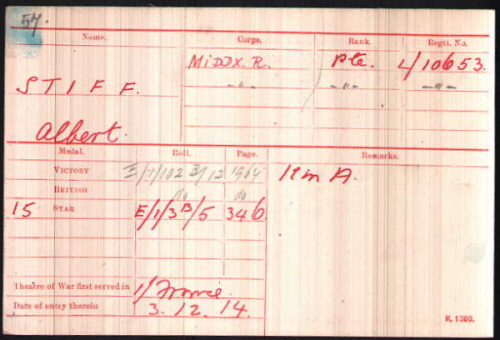 57.
Name. Corps. Rank. Regtl. No.
MiDDX. R. Pte. L/10653.
STIFF. -"- -"- -"-
Albert.
Medal. Roll. Page. Remarks.
VICTORY E/1/102 B/12 1964
BRITISH do do
15 STAR E/1/3B/5 346
Theatre of War first served in 1/ France
Date of entry therein 3.12.14.
K. 1380.